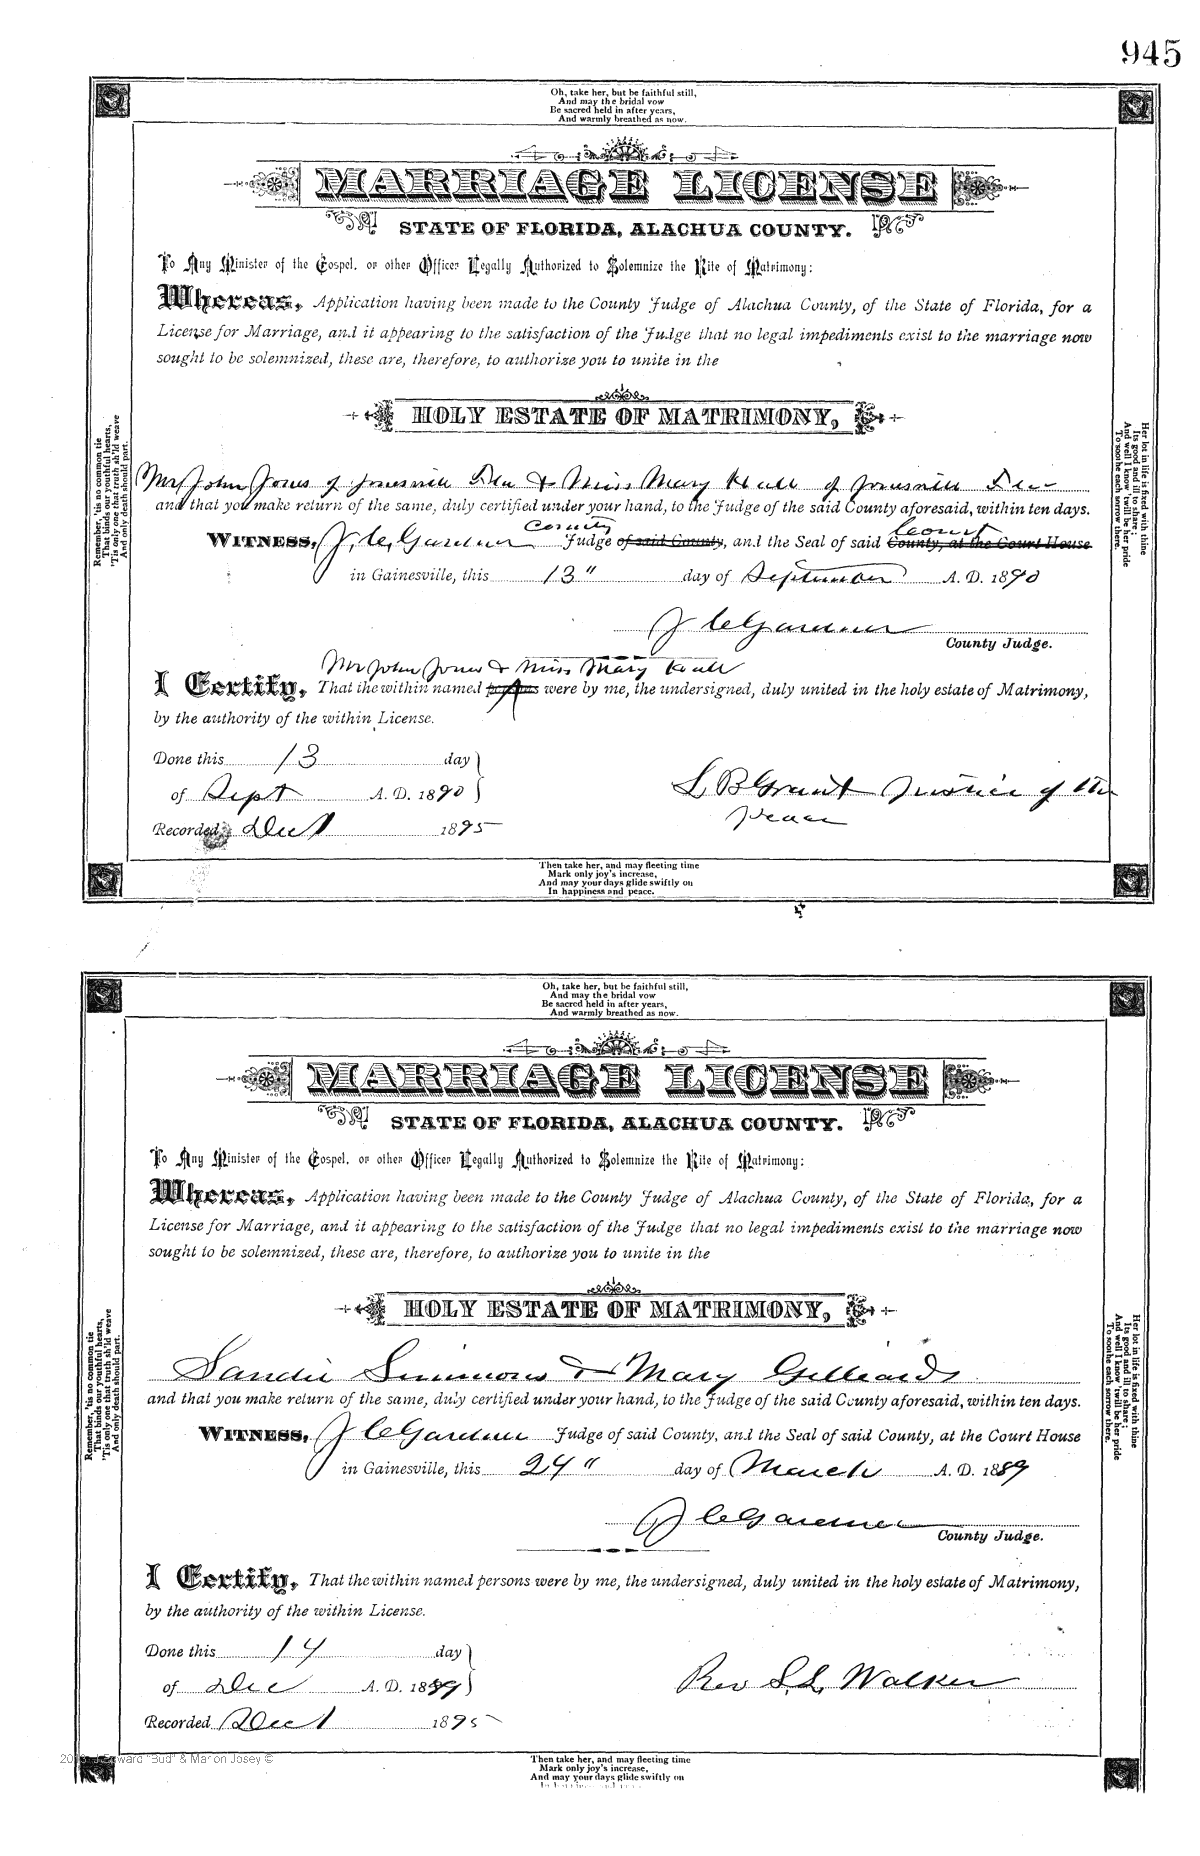 945
Oh, take her, but be faithful still,
And may the bridal vow
Be sacred held in after years,
And warmly breathed as now.
MARRIAGE LICENSE
STATE OF FLORIDA, ALACHUA COUNTY.
To Any Minister of the Gospel, or other Officer Legally Authorized to Solemnize the Rite of Matrimony:
Whereas, Application having been made to the County Judge of Alachua County, of the State of Florida, for a
License for Marriage, and it appearing to the satisfaction of the Judge that no legal impediments exist to the marriage now
sought to be solemnized, these are, therefore, to authorize you to unite in the
HOLY ESTATE OF MATRIMONY,
Remember, 'tis no common tie
That binds our youthful hearts,
'Tis only one that truth sh'ld weave
And only death should part.
Her lot in life is fixed with thine
Its good and ill to share;
And well I know 'twill be her pride
To soothe each sorrow there.
Mr John Jones of Jonesville Fla & Miss Mary Hall of Jonesville Fla
and that you make return of the same, duly certified under your hand, to the Judge of the said County aforesaid, within ten days.
County Court
WITNESS, J. C. Gardner Judge of said County, and the Seal of said County, at the Court House
in Gainesville, this 13" day of September A. D. 1890
J C Gardner
County Judge.
Mr John Jones & Miss Mary Hall
I Certify, That the within named persons were by me, the undersigned, duly united in the holy estate of Matrimony,
by the authority of the within License.
Done this 13 day
of Sept A. D. 1890
L B Grant Justice of the
peace
Recorded Dec 1 1895
Then take her, and may fleeting time
Mark only joy's increase,
And may your days glide swiftly on
In happiness and peace.
Oh, take her, but be faithful still,
And may the bridal vow
Be sacred held in after years,
And warmly breathed as now.
MARRIAGE LICENSE
STATE OF FLORIDA, ALACHUA COUNTY.
To Any Minister of the Gospel, or other Officer Legally Authorized to Solemnize the Rite of Matrimony:
Whereas, Application having been made to the County Judge of Alachua County, of the State of Florida, for a
License for Marriage, and it appearing to the satisfaction of the Judge that no legal impediments exist to the marriage now
sought to be solemnized, these are, therefore, to authorize you to unite in the
HOLY ESTATE OF MATRIMONY,
Remember, 'tis no common tie
That binds our youthful hearts,
'Tis only one that truth sh'ld weave
And only death should part.
Her lot in life is fixed with thine
Its good and ill to share;
And well I know 'twill be her pride
To soothe each sorrow there.
Sandie Simmons & Mary Gilleards
and that you make return of the same, duly certified under your hand, to the Judge of the said County aforesaid, within ten days.
WITNESS, J C Gardner Judge of said County, and the Seal of said County, at the Court House
in Gainesville, this 24" day of March A. D. 1889
J C Gardner
County Judge.
I Certify, That the within named persons were by me, the undersigned, duly united in the holy estate of Matrimony,
by the authority of the within License.
Done this 14 day
of Dec A. D. 1889
Rev S. L. Walker
Recorded Dec 1 1895
J Edward "Bud" & Marion Josey ©
Then take her, and may fleeting time
Mark only joy's increase,
And may your days glide swiftly on